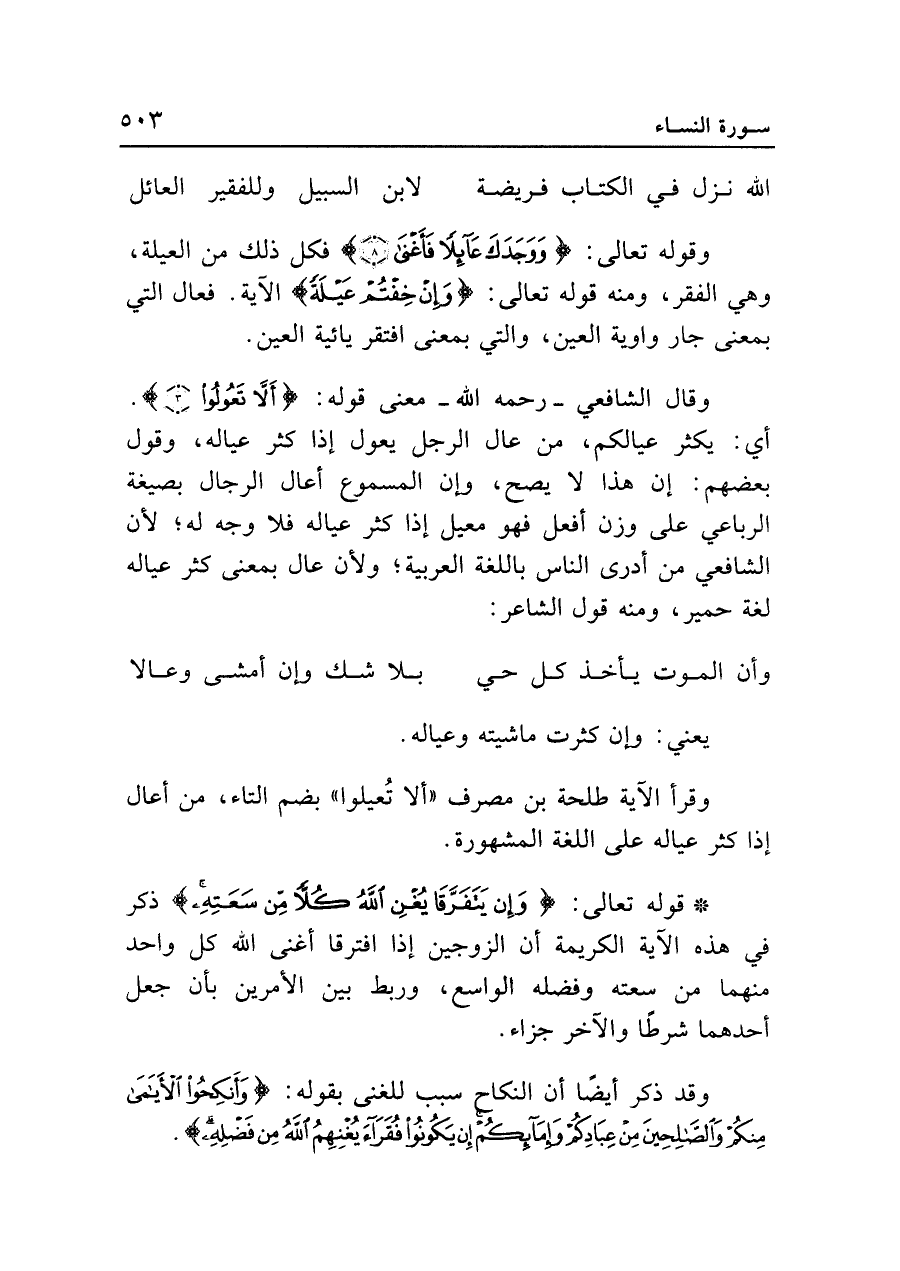 سورة النساء ٥٠٣
الله نزل في الكتاب فريضة لابن السبيل وللفقير العائل
وقوله تعالى: ﴿وَوَجَدَكَ عَآئِلًا فَأَغْنَىٰ ٨﴾ فكل ذلك من العيلة،
وهي الفقر، ومنه قوله تعالى: ﴿وَإِنْ خِفْتُمْ عَيْلَةً﴾ الآية. فعال التي
بمعنى جار واوية العين، والتي بمعنى افتقر يائية العين.
وقال الشافعي ـ رحمه الله ـ معنى قوله: ﴿أَلَّا تَعُولُوا۟ ٣﴾.
أي: يكثر عيالكم، من عال الرجل يعول إذا كثر عياله، وقول
بعضهم: إن هذا لا يصح، وإن المسموع أعال الرجال بصيغة
الرباعي على وزن أفعل فهو معيل إذا كثر عياله فلا وجه له؛ لأن
الشافعي من أدرى الناس باللغة العربية؛ ولأن عال بمعنى كثر عياله
لغة حمير، ومنه قول الشاعر:
وأن الموت يأخذ كل حي بلا شك وإن أمشى وعالا
يعني: وإن كثرت ماشيته وعياله.
وقرأ الآية طلحة بن مصرف «ألا تُعيلوا» بضم التاء، من أعال
إذا كثر عياله على اللغة المشهورة.
* قوله تعالى: ﴿وَإِن يَتَفَرَّقَا يُغْنِ ٱللَّهُ كُلًّا مِّن سَعَتِهِۦۚ﴾ ذكر
في هذه الآية الكريمة أن الزوجين إذا افترقا أغنى الله كل واحد
منهما من سعته وفضله الواسع، وربط بين الأمرين بأن جعل
أحدهما شرطًا والآخر جزاء.
وقد ذكر أيضًا أن النكاح سبب للغنى بقوله: ﴿وَأَنكِحُوا۟ ٱلْأَيَـٰمَىٰ
مِنكُمْ وَٱلصَّـٰلِحِينَ مِنْ عِبَادِكُمْ وَإِمَآئِكُمْۚ إِن يَكُونُوا۟ فُقَرَآءَ يُغْنِهِمُ ٱللَّهُ مِن فَضْلِهِۦۗ﴾.